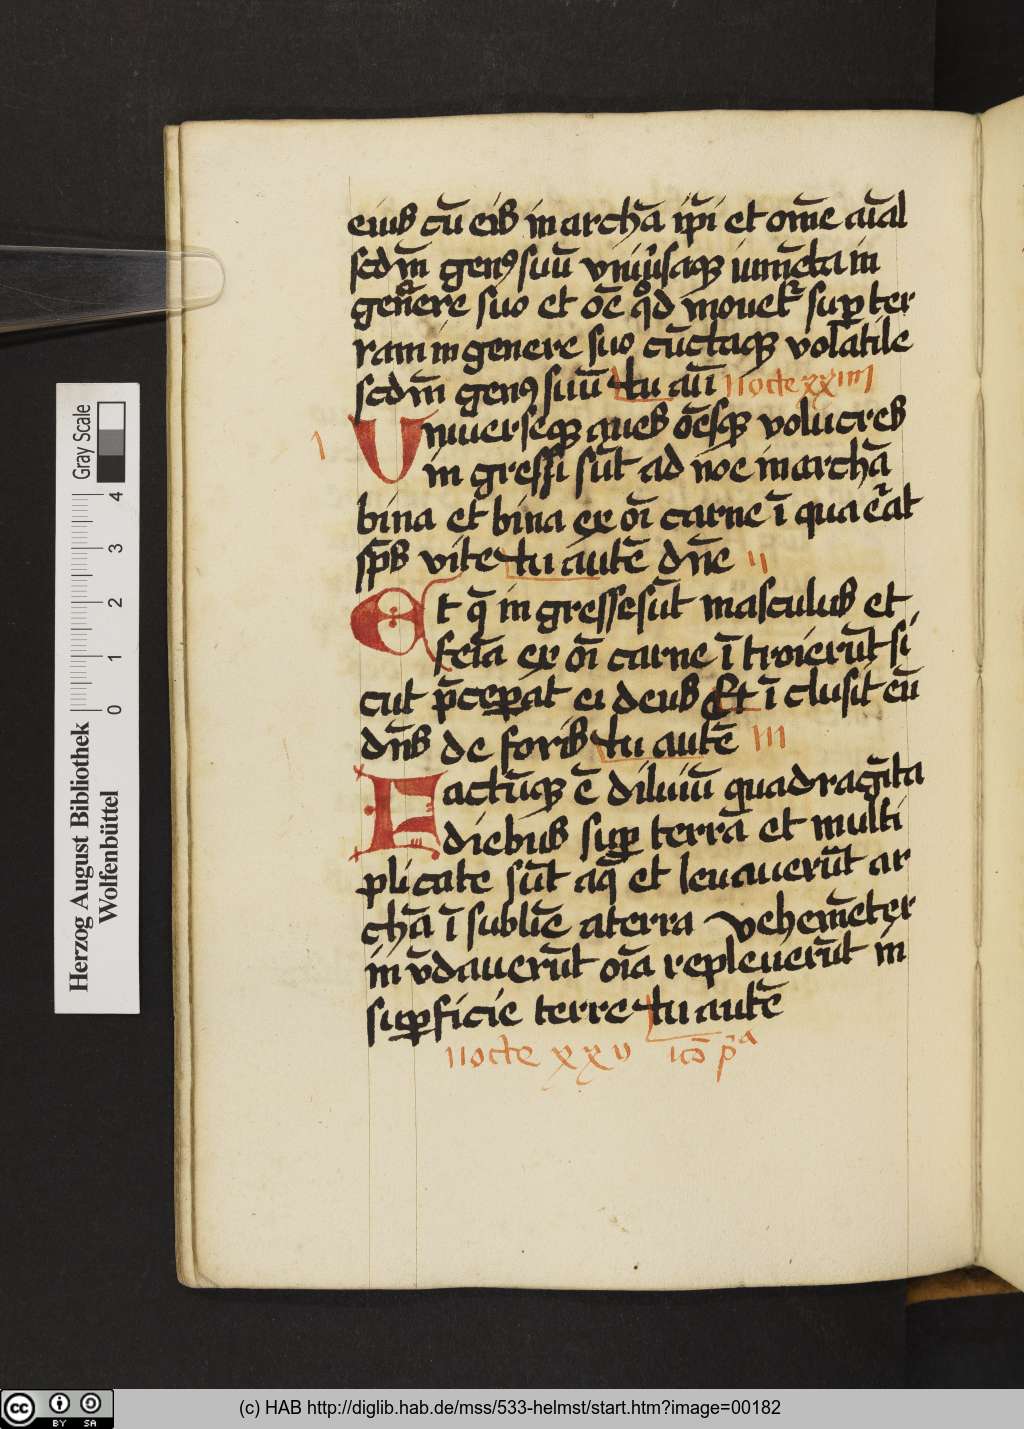 eius cū eis in archā ip̄i et om̄e aīal
scdm̄ genꝰ suū vniꝰsaqꝫ iumēta in
genere suo et oē qd mouetᷣ suꝑ ter
ram in genere suo cūctaqꝫ volatile
scdm̄ genꝰ suū tu aūt nocte xxiiii
1
Vniuerseqꝫ aues ōēsqꝫ volucres
in gressi sūt ad noe in archā
bina et bina ex oī carne ī qua eͣat
sp̄s vite tu autē dn̄e ii
Et q̄ in gresse sūt masculus et
feīa ex oī carne ī troierūt si
cut p̄ceꝑat ei deus Et ī clusit eū
dn̄s de foris tu autē iii
Factūqꝫ ē diluuiū quadragīta
diebus suꝑ terrā et multi
plicate sūt aq̄ et leuauerūt ar
chā ī subliē a terra vehemēter
in v̄dauerūt oīa repleuerūt in
suꝑficie terre tu autē
nocte xxv icō pᵃ
Gray Scale
0 1 2 3 4
Herzog August Bibliothek
Wolfenbüttel
cc BY SA
(c) HAB http://diglib.hab.de/mss/533-helmst/start.htm?image=00182